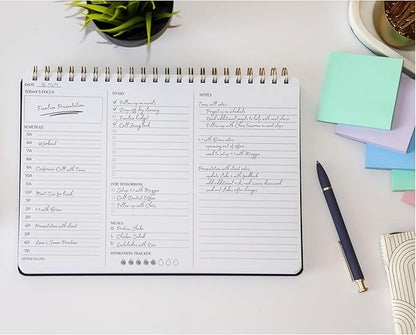 DATE
TODAY'S FOCUS
Timeline Presentation
SCHEDULE
5A
6A Workout
7A
8A
9A Conference Call with Tom
10A
11A
12P
1P
2P 1:1 with Brian
3P
4P Presentation with client
5P
6P Soccer Practice
7P
AFTER HOURS
TO DO
Follow up on emails
Drop off dry cleaning
Finalize budget
Call Stacy back
FOR TOMORROW
Setup 1:1 with Maggie
Call Dentist Office
Follow up with Chris
MEALS
B Protein Shake
L Chicken Salad
D Enchiladas with Rice
HYDRATION TRACKER
NOTES
Team call notes:
Project is on schedule
Need additional needs to help with next phase
Follow up with Chris tomorrow on next steps
1:1 with Brian notes:
upcoming out of office
need to setup 1:1 with Maggie
Presentation with client notes:
update slides with feedback
add additional notes and review discussed
send out slides after changes